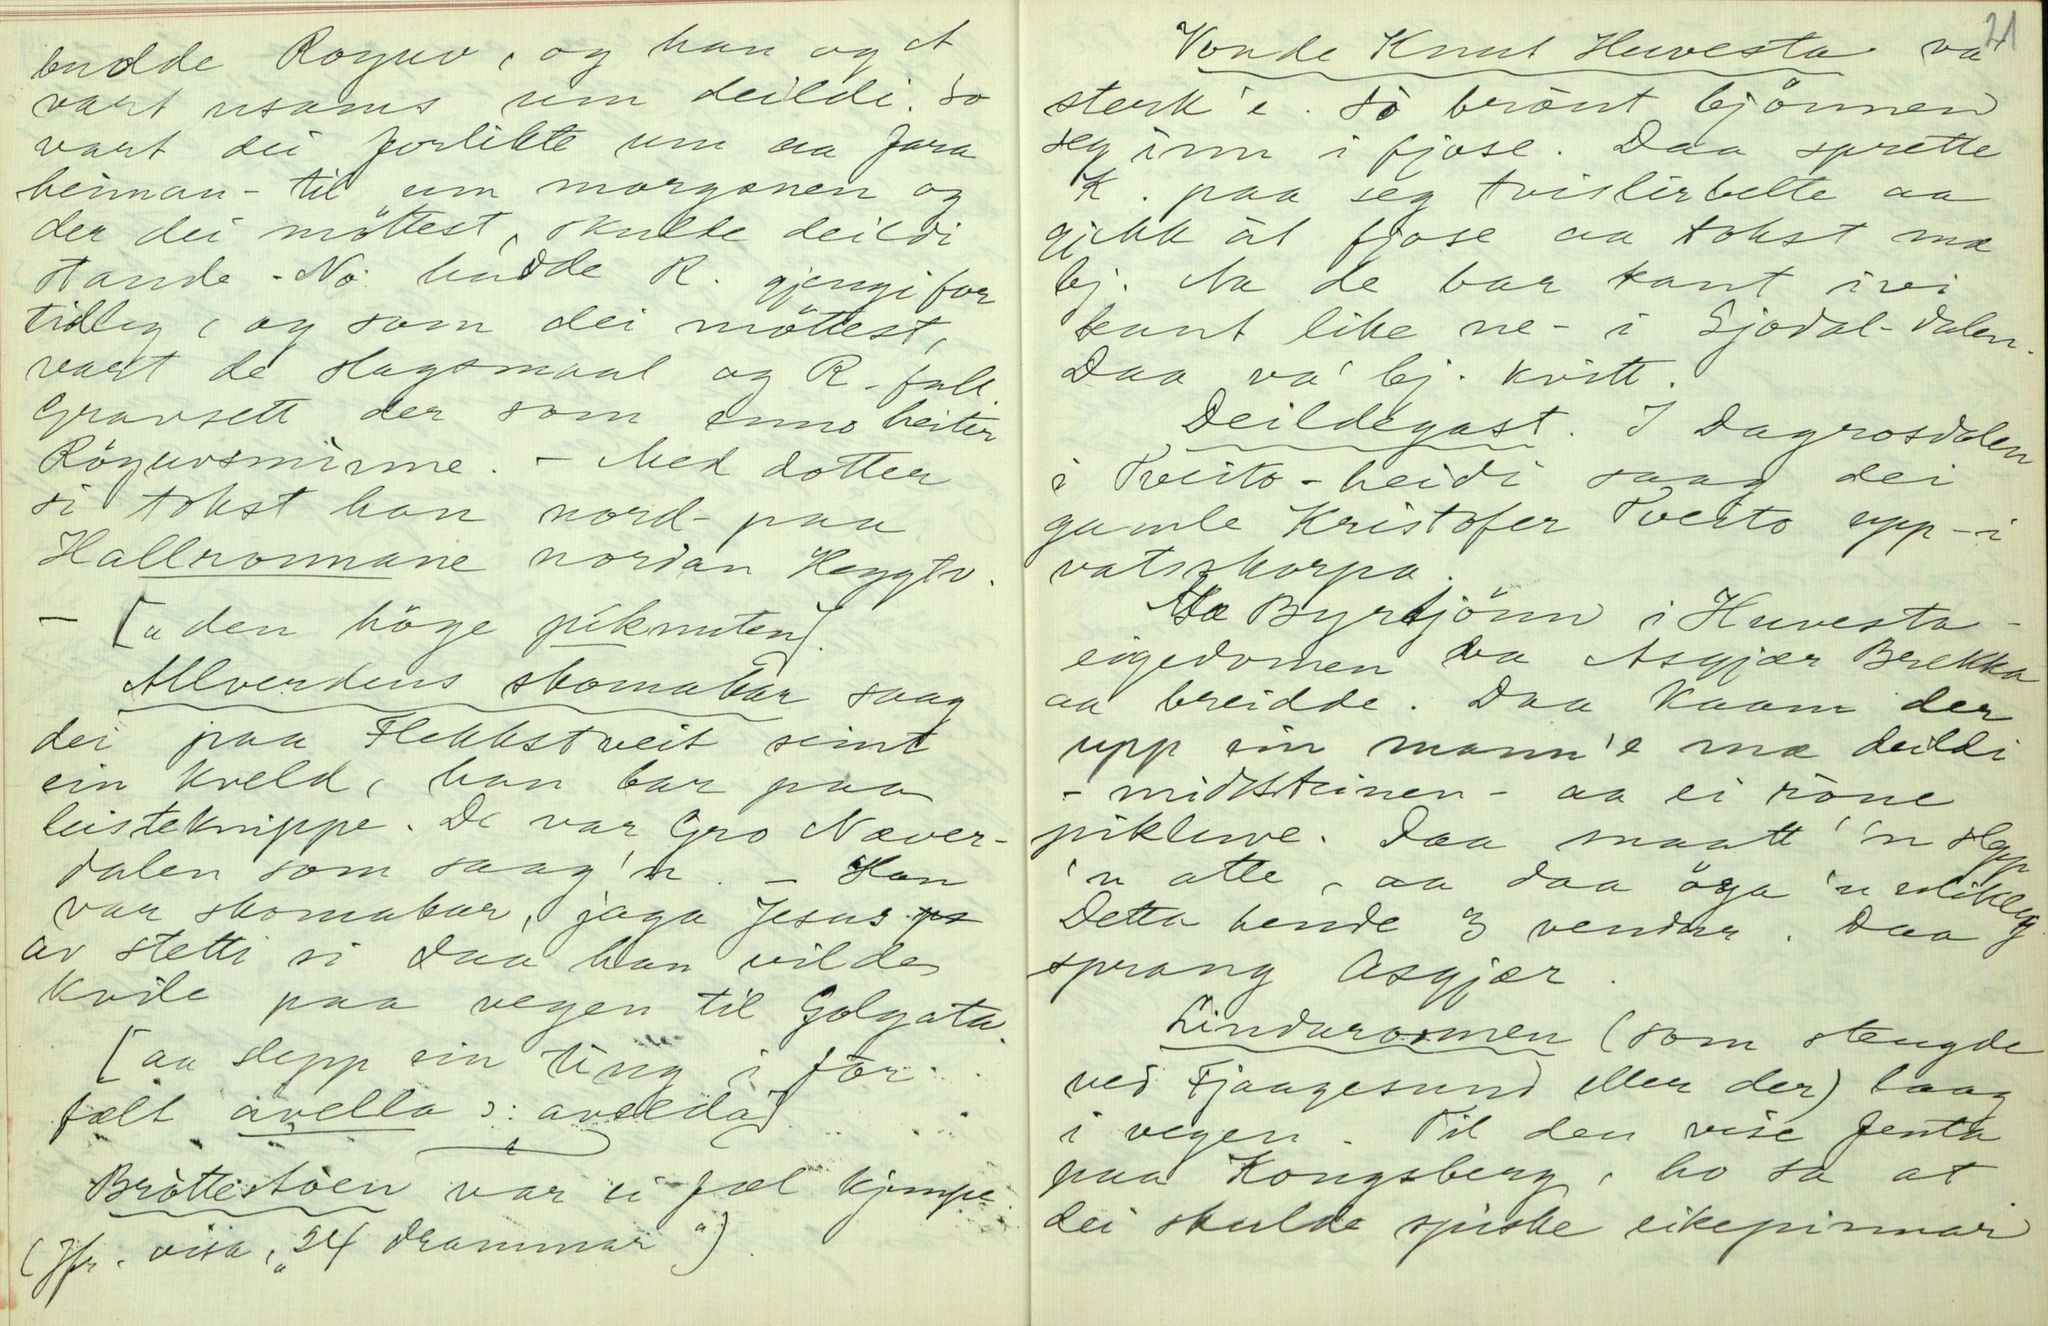 budde Roguv, og han og et
vart usams um deildi. So
vart dei forlikte um aa fara
heiman-til um morgonen og
der dei möttest, skulde deildi
stande - No hadde R. gjengi for
tidleg, og som dei möttest,
vart de slagsmaal og R. fall.
Gravsett der som enno heiter
Röguvsminne. - Med dotter
si tokst han nord-paa
Hallronnane nordan Heggtv.
- [a den höge piknuten].
Allverdens skomakar saag
dei paa Flekkstveit seint
ein kveld, han bar paa
leisteknippe. De var Gro Næver-
dalen som saag'n. - Han
var skomakar, jaga Jesus
av stetti si daa han vilde
kvile paa vegen til Golgata.
[aa slepp ein ting i for-
fælt avella ɔ: avselda].
Bròttestòen var ei fæl kjempe
(Jfr. visa, „24 drammar")
21
Vonde Knut Huvesta va
sterk'e. Sò bròut bjönnen
seg inn i fjose. Daa sprette
K. paa seg tvislirbelte aa
gjekk åt fjose aa tokst mæ
bj. Aa de bar kant ivi
kant like ne- i Sjodal-dalen.
Daa va' bj. kvitt.
Deildegast. I Dagrosdalen
i Tveito-heidi saag dei
gamle Kristofer Tveito upp-i
vatsskorpa.
Ve Byrtjönn i Huvesta-
eigedomen va Asgjær Brekka
aa breidde. Daa kaam der
upp ein mann'e mæ deildi
- midsteinen - aa ei röne
pikluve. Daa maatt 'n slepp
'n atte, aa daa öga 'n solikeg
Detta hende 3 vendur. Daa
sprang Asgjær.
Lindarormen (som stengde
ved Fjaagesund eller der) laag
i vegen. Til den vise jenta
paa Kongsberg, ho sa at
dei skulde spiske eikepinnar